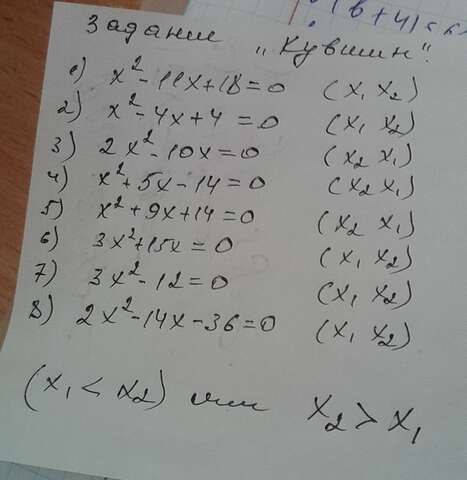 (b + 4)
Задание „Кувшин".
1) x² - 11x + 18 = 0 (x₁ x₂)
2) x² - 4x + 4 = 0 (x₁ x₂)
3) 2x² - 10x = 0 (x₂ x₁)
4) x² + 5x - 14 = 0 (x₂ x₁)
5) x² + 9x + 14 = 0 (x₂ x₁)
6) 3x² + 15x = 0 (x₁ x₂)
7) 3x² - 12 = 0 (x₁ x₂)
8) 2x² - 14x - 36 = 0 (x₁ x₂)
(x₁ < x₂) или x₂ > x₁